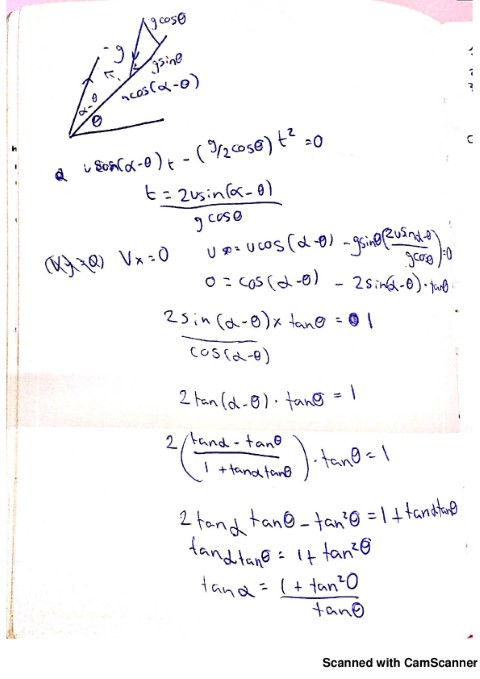 g cosθ
g
g sinθ
α-θ
θ
ucos(α-θ)
u sin(α-θ) t - (g/2 cosθ) t² = 0
t = 2usin(α-θ) / g cosθ
Vx = 0 Vx = ucos(α-θ) - g sinθ(2usinα-θ / g cosθ) = 0
0 = cos(α-θ) - 2 sin(α-θ)·tanθ
2 sin(α-θ) × tanθ / cos(α-θ) = 1
2 tan(α-θ) · tanθ = 1
2 (tanα - tanθ / 1 + tanα tanθ) · tanθ = 1
2 tanα tanθ - tan²θ = 1 + tanα tanθ
tanα tanθ = 1 + tan²θ
tanα = 1 + tan²θ / tanθ
Scanned with CamScanner